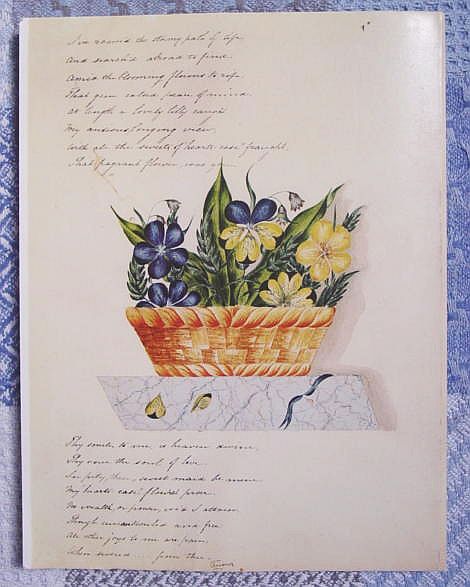 I've roamed the stormy path of life
And search'd abroad to find
Amid the blooming flowers so rife
That gem called peace of mind
At length a lovely lilly caught
My anxious longing view
With all the sweets of hearts ease fraught
That fragrant flower was you
Thy smile to me is heaven divine
Thy voice the soul of love
In pity, then, sweet maid be mine
My hearts ease floral prove
No wealth, or power,
Though
All other joys to me are pain
When from thee